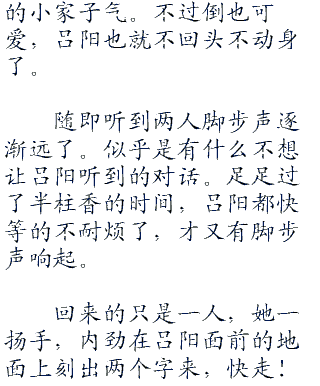 的小家子气。不过倒也可
爱，吕阳也就不回头不动身
了。
随即听到两人脚步声逐
渐远了。似乎是有什么不想
让吕阳听到的对话。足足过
了半柱香的时间，吕阳都快
等的不耐烦了，才又有脚步
声响起。
回来的只是一人，她一
扬手，内劲在吕阳面前的地
面上刻出两个字来，快走！